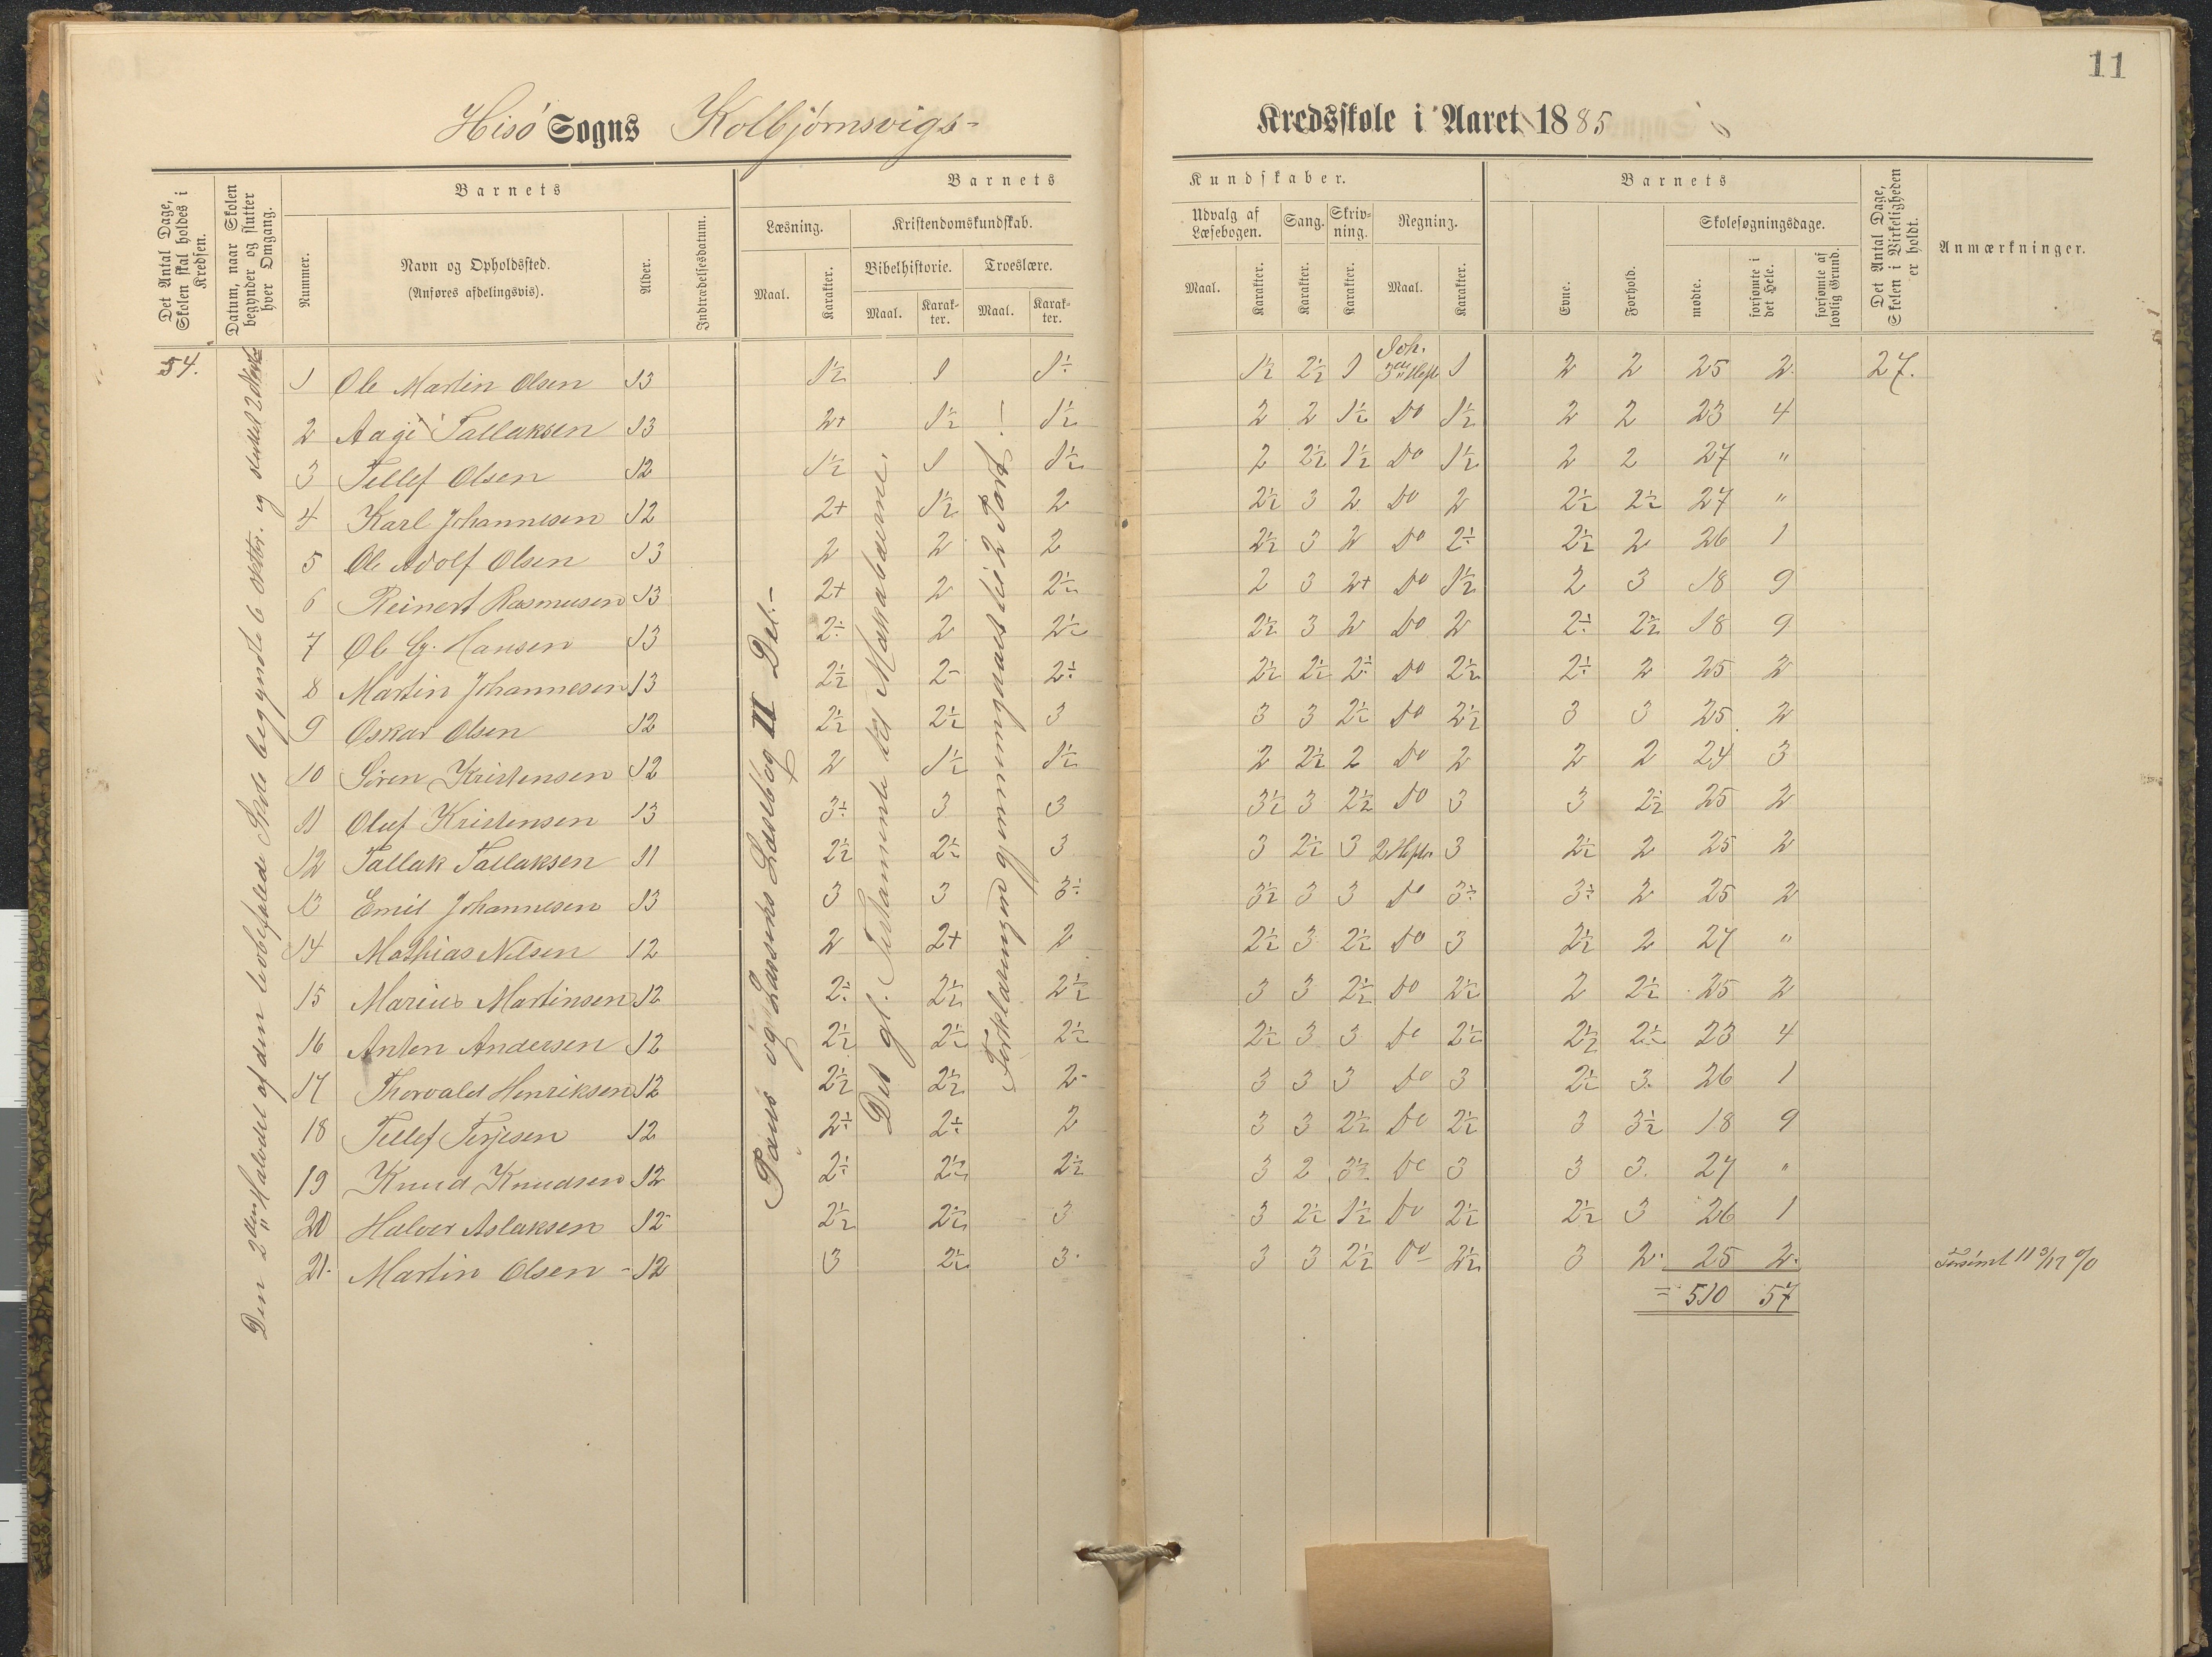 11
Hisö Sogns Kolbjörnsvigs- Kredsskole i Aaret 1885
Det Antal Dage, Skolen skal holdes i Kredsen.
Datum, naar Skolen begynder og slutter hver Omgang.
Barnets
Nummer.
Navn og Opholdssted.
(Anføres afdelingsvis).
Alder.
Indtrædelsesdatum.
Barnets Kundskaber.
Læsning.
Maal.
Karakter.
Kristendomskundskab.
Bibelhistorie.
Maal.
Karakter.
Troeslære.
Maal.
Karakter.
Udvalg af Læsebogen.
Maal.
Karakter.
Sang.
Karakter.
Skrivning.
Karakter.
Regning.
Maal.
Karakter.
Barnets
Evne.
Forhold.
Skolesøgningsdage.
mødte.
forsømte i det Hele.
forsømte af lovlig Grund.
Det Antal Dage, Skolen i Virkeligheden er holdt.
Anmærkninger.
54.
Den 2den Halvdel af den lovbefalede Skole begyndte 6 oktbr. og sluttet 2
Paus og Lassens Læsebog II Del.-
Det gl. Testamente til Makkabæerne.
Forklaringen gjennemgaaes til 2 Part.-
1 Ole Martin Olsen 13 1½ 1 1÷ 1½ 2½ 1 Joh. 3die Hefte 1 2 2 25 2 27.
2 Aage Tallaksen 13 2+ 1½ 1½ 2 2 1½ Do 1½ 2 2 23 4
3 Tellef Olsen 12 1½ 1 1½ 2 2½ 1½ Do 1½ 2 2 27 "
4 Karl Johannesen 12 2+ 1½ 2 2½ 3 2 Do 2 2½ 2½ 27 "
5 Ole Adolf Olsen 13 2 2 2 2½ 3 2 Do 2÷ 2½ 2 26 1
6 Reinert Rasmusen 13 2+ 2 2½ 2 3 2+ Do 1½ 2 3 18 9
7 Ole G. Hansen 13 2÷ 2 2½ 2½ 3 2 Do 2 2÷ 2½ 18 9
8 Martin Johannesen 13 2½ 2- 2÷ 2½ 2½ 2÷ Do 2½ 2÷ 2 25 2
9 Oskar Olsen 12 2½ 2½ 3 3 3 2½ Do 2½ 3 3 25 2
10 Sören Kristensen 12 2 1½ 1½ 2 2½ 2 Do 2 2 2 24 3
11 Oluf Kristensen 13 3÷ 3 3 3½ 3 2½ Do 3 3 2½ 25 2
12 Tallak Tallaksen 11 2½ 2½ 3 3 2½ 3 2 Hefte 3 2½ 2 25 2
13 Emil Johannesen 13 3 3 3÷ 3½ 3 3 Do 3÷ 3÷ 2 25 2
14 Mathias Nilsen 12 2 2+ 2 2½ 3 2½ Do 3 2½ 2 27 "
15 Marius Martinsen 12 2÷ 2½ 2½ 3 3 2½ Do 2½ 2 2½ 25 2
16 Anton Andersen 12 2½ 2½ 2½ 2½ 3 3 Do 2½ 2½ 2½ 23 4
17 Thorvald Henriksen 12 2½ 2½ 2- 3 3 3 Do 3 2½ 3. 26 1
18 Tellef Terjesen 12 2÷ 2÷ 2 3 3 2½ Do 2½ 3 3½ 18 9
19 Knud Knudsen 12 2÷ 2½ 2½ 3 2 3½ Do 3 3 3. 27 "
20 Halvor Aslaksen 12 2½ 2½ 3 3 2½ 1½ Do 2½ 2½ 3 26 1
21. Martin Olsen - 12 3 2½ 3. 3 3 2½ Do 2½ 3 2. 25 2. Forsömt 11 %
= 510 57